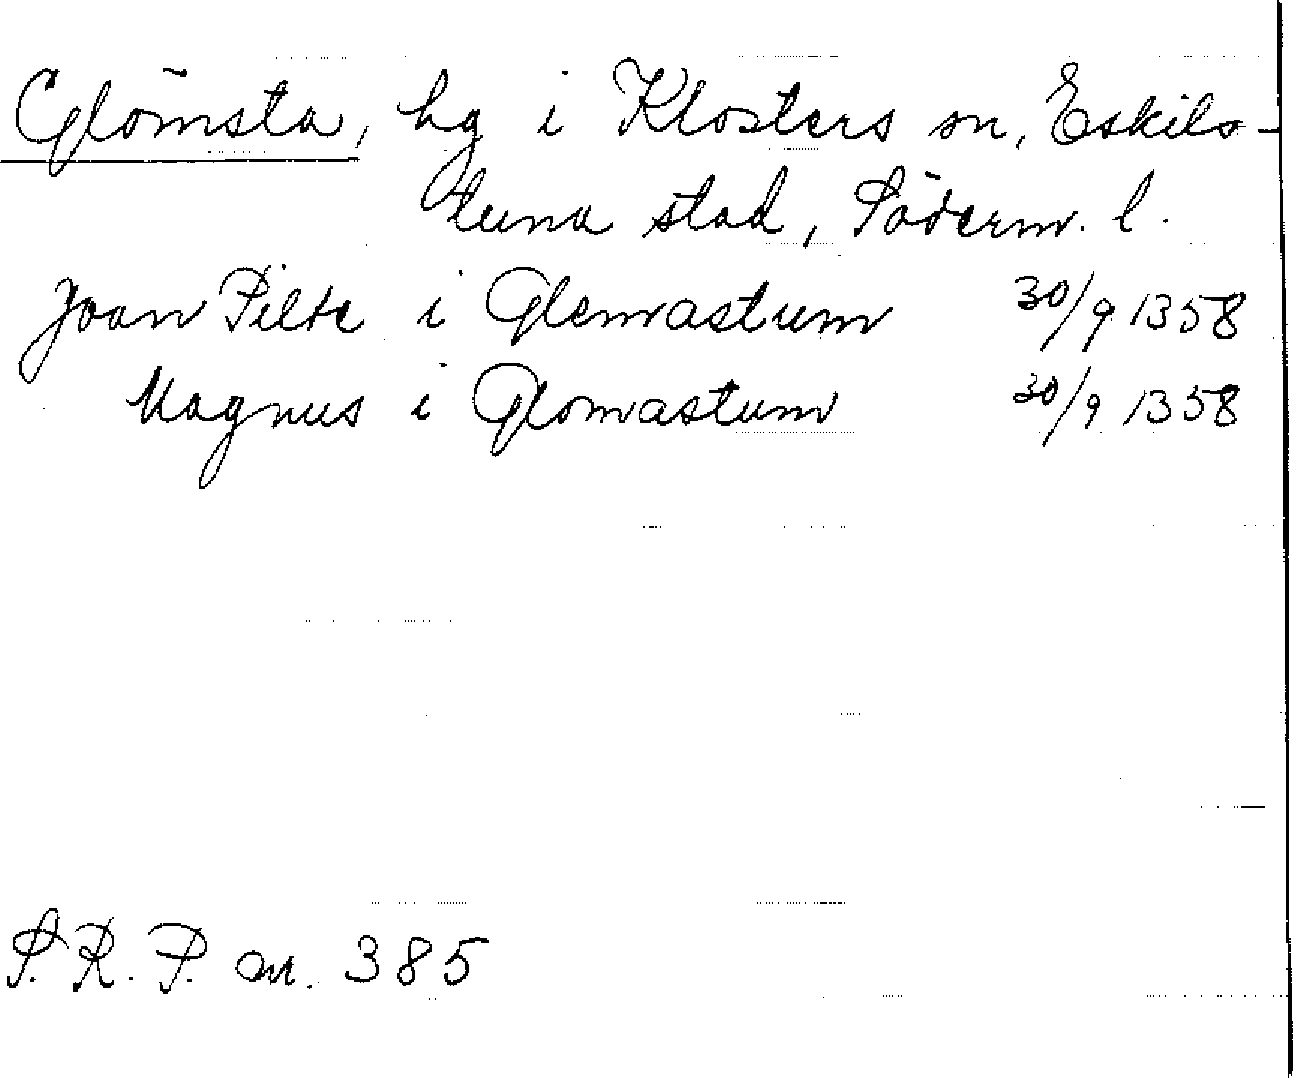 Glömsta, hg i Klosters sn, Eskils-
tuna stad, Söderm. l.
Joan Pilte i Glemastum 30/9 1358
Magnus i Glomastum 30/9 1358
S.R.P. nr. 385